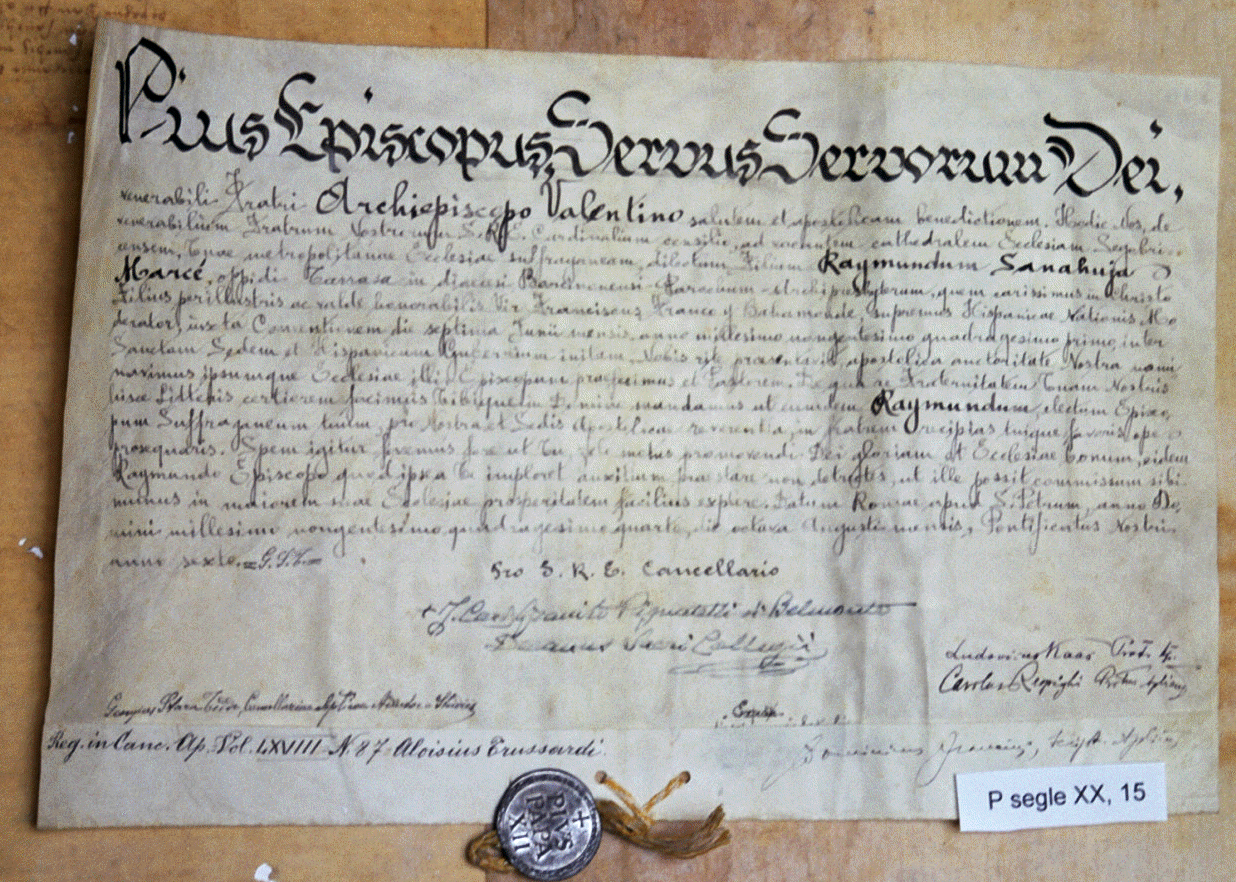 Pius Episcopus, Servus Servorum Dei,
venerabili Fratri Archiepiscopo Valentino salutem et apostolicam benedictionem. Hodie Nos, de
venerabilium Fratrum Nostrorum S. R. E. Cardinalium consilio, ad vacantem cathedralem Ecclesiam Segobri-
censem, Tuae metropolitanae Ecclesiae suffraganeam, dilectum Filium Raymundum Sanahuja
Marcé, oppidi Tarrasa in dioecesi Barcinonensi Parochum Archipresbyterum, quem carissimus in Christo
Filius perillustris ac valde honorabilis Vir Franciscus Franco y Bahamonde, Supremus Hispanicae Nationis Mo
derator, iuxta Conventionem die septima Junii mensis, anno millesimo nongentesimo quadragesimo primo, inter
Sanctam Sedem et Hispanicum Gubernium initam, Nobis rite praesentavit, apostolica auctoritate Nostra nomi
navimus ipsumque Ecclesiae illi Episcopum praefecimus et Pastorem. De qua re Fraternitatem Tuam Nostris
hisce Litteris certiorem facimus Tibique in Domino mandamus ut eundem Raymundum, electum Episco,
pum Suffraganeum tuum, pro Nostra et Sedis Apostolicae reverentia, in fratrem recipias tuique favoris ope
prosequaris. Spem igitur fovemus fore ut Tu, zelo motus promovendi Dei gloriam et Ecclesiae bonum, eidem
Raymundo Episcopo quod ipse a Te imploret auxilium praestare non detrectes, ut ille possit commissum sibi
munus in maiorem suae Ecclesiae prosperitatem facilius explere. Datum Romae apud S. Petrum, anno Do,
mini millesimo nongentesimo quadragesimo quarto, die octava Augusti mensis, Pontificatus Nostri
anno sexto.
Pro S. R. E. Cancellario
+ J. Card. Granito Pignatelli di Belmonte
Decanus Sacri Collegii
Ludovicus Kaas Prot. Ap.
Carolus Respighi Proton. Aplicus
Reg. in Canc. Ap. Vol. LXVIIII N. 87 Aloisius Trussardi
P segle XX, 15
+
PIVS
PAPA
XII